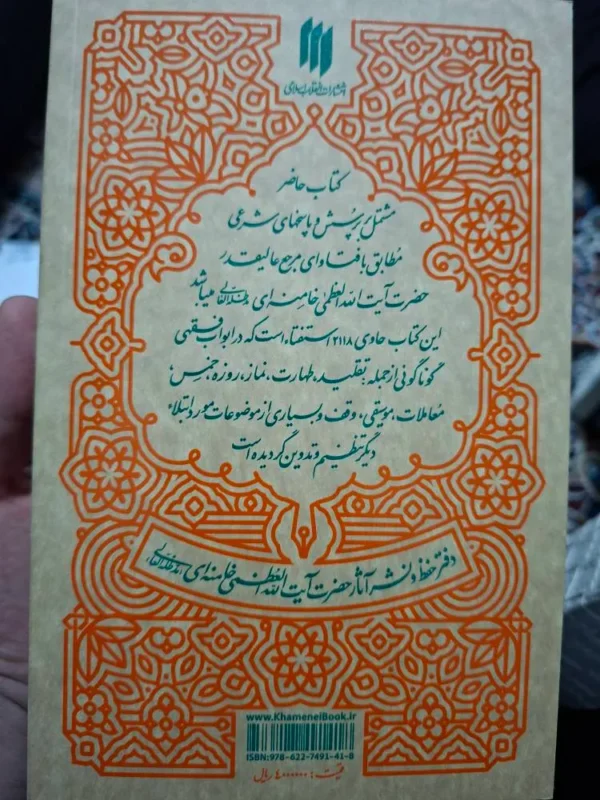 انتشارات انقلاب اسلامی
کتاب حاضر
مشتمل بر پرسش و پاسخهای شرعی
مطابق با فتاوای مرجع عالیقدر
حضرت آیت الله العظمی خامنه‌ای مدظله‌العالی میباشد
این کتاب حاوی ۲۱۱۸ استفتاء است که در ابواب فقهی
گوناگونی از جمله: تقلید، طهارت، نماز، روزه، خمس،
معاملات، موسیقی، وقف و بسیاری از موضوعات مورد ابتلاء
دیگر تنظیم و تدوین گردیده است
دفتر حفظ و نشر آثار حضرت آیت الله العظمی خامنه‌ای مدظله‌العالی
www.KhameneiBook.ir
ISBN:978-622-7491-41-8
قیمت: ۴۰۰۰۰۰۰ ریال